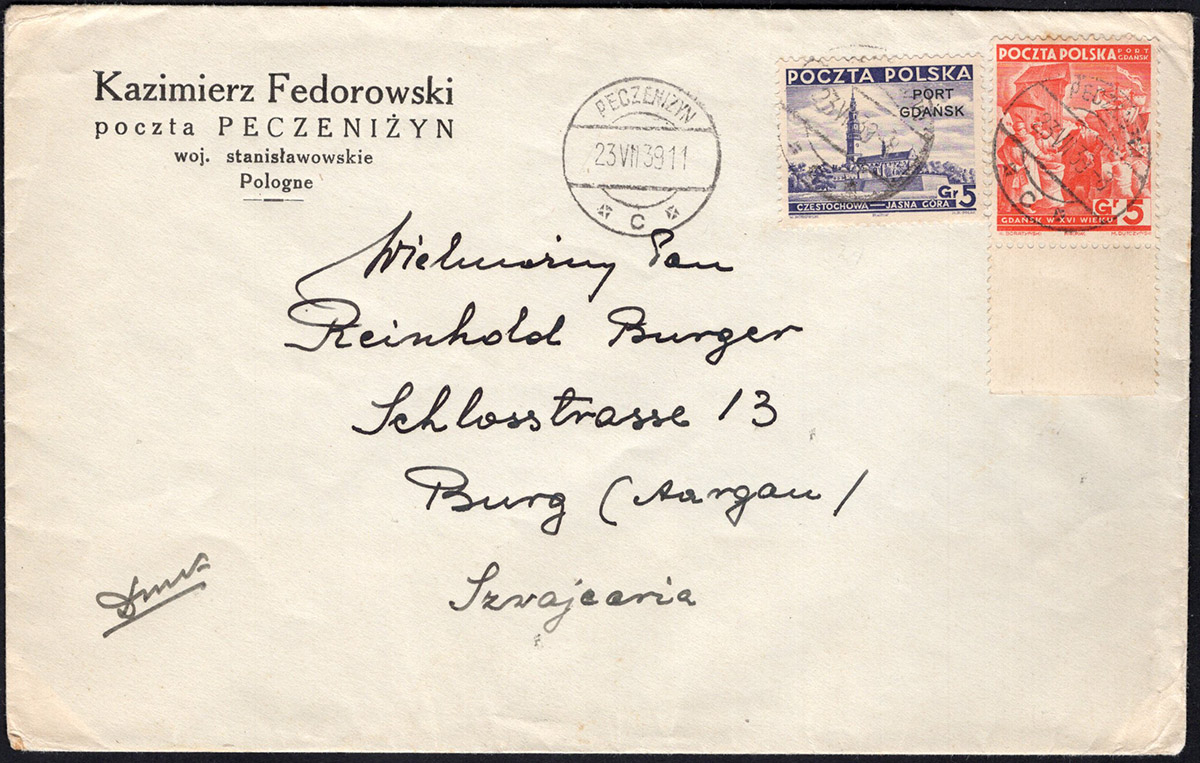 Kazimierz Fedorowski
poczta PECZENIŻYN
woj. stanisławowskie
Pologne
PECZENIŻYN
23 VII 39 11
C
POCZTA POLSKA
PORT
GDAŃSK
Gr 5
CZĘSTOCHOWA — JASNA GÓRA
POCZTA POLSKA PORT GDAŃSK
Gr 15
GDAŃSK W XVI WIEKU
Wielmożny Pan
Reinhold Burger
Schlosstrasse 13
Burg (Aargau)
Szwajcaria
Druk